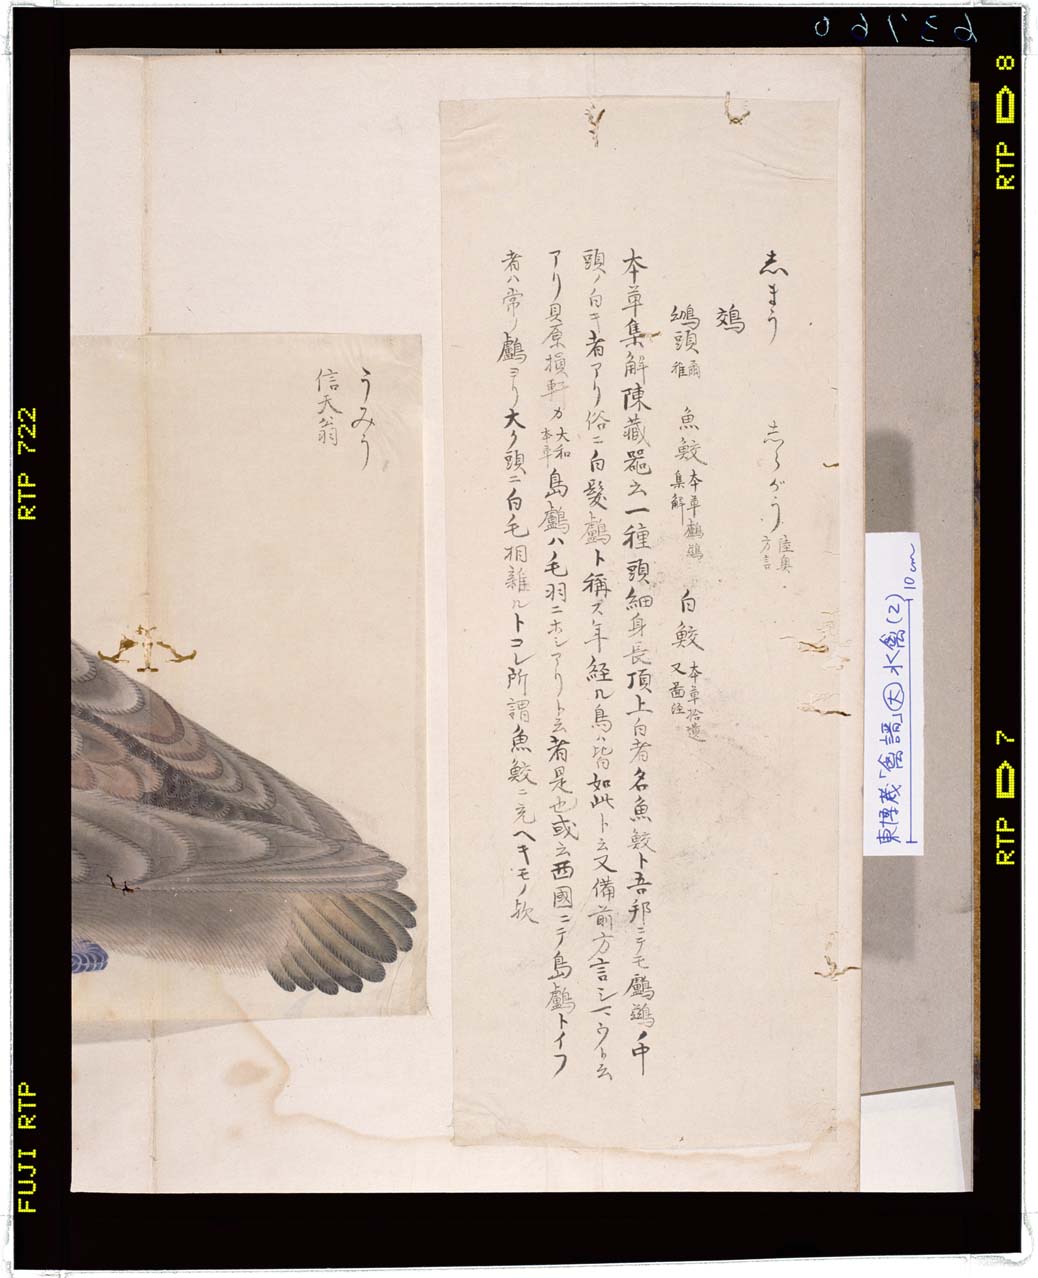 志まう　志らがう 陸奥方言
鵁
鳭頭 爾雅　魚鮫 本草鸕鷀集解　白鮫 本草拾遺 又啚経
本草集解陳藏器云一種頭細身長頂上白者名魚鮫ト吾邦ニテモ鸕鷀ノ中
頭ノ白キ者アリ俗ニ白髪鸕ト稱ス年経ル鳥ハ皆如此ト云又備前方言シマウト云
アリ貝原損軒カ 大和本草 島鸕ハノ毛羽ニホシアリト云者是也或云西國ニテ島鸕トイフ
者ハ常ノ鸕ヨリ大ク頭ニ白毛相雜ルトコレ所謂魚鮫ニ充ヘキモノ歟
うみう
信天翁
東博蔵「禽譜」(大) 水禽(2)
10cm
63760
RTP 8
RTP 7
RTP 722
FUJI RTP